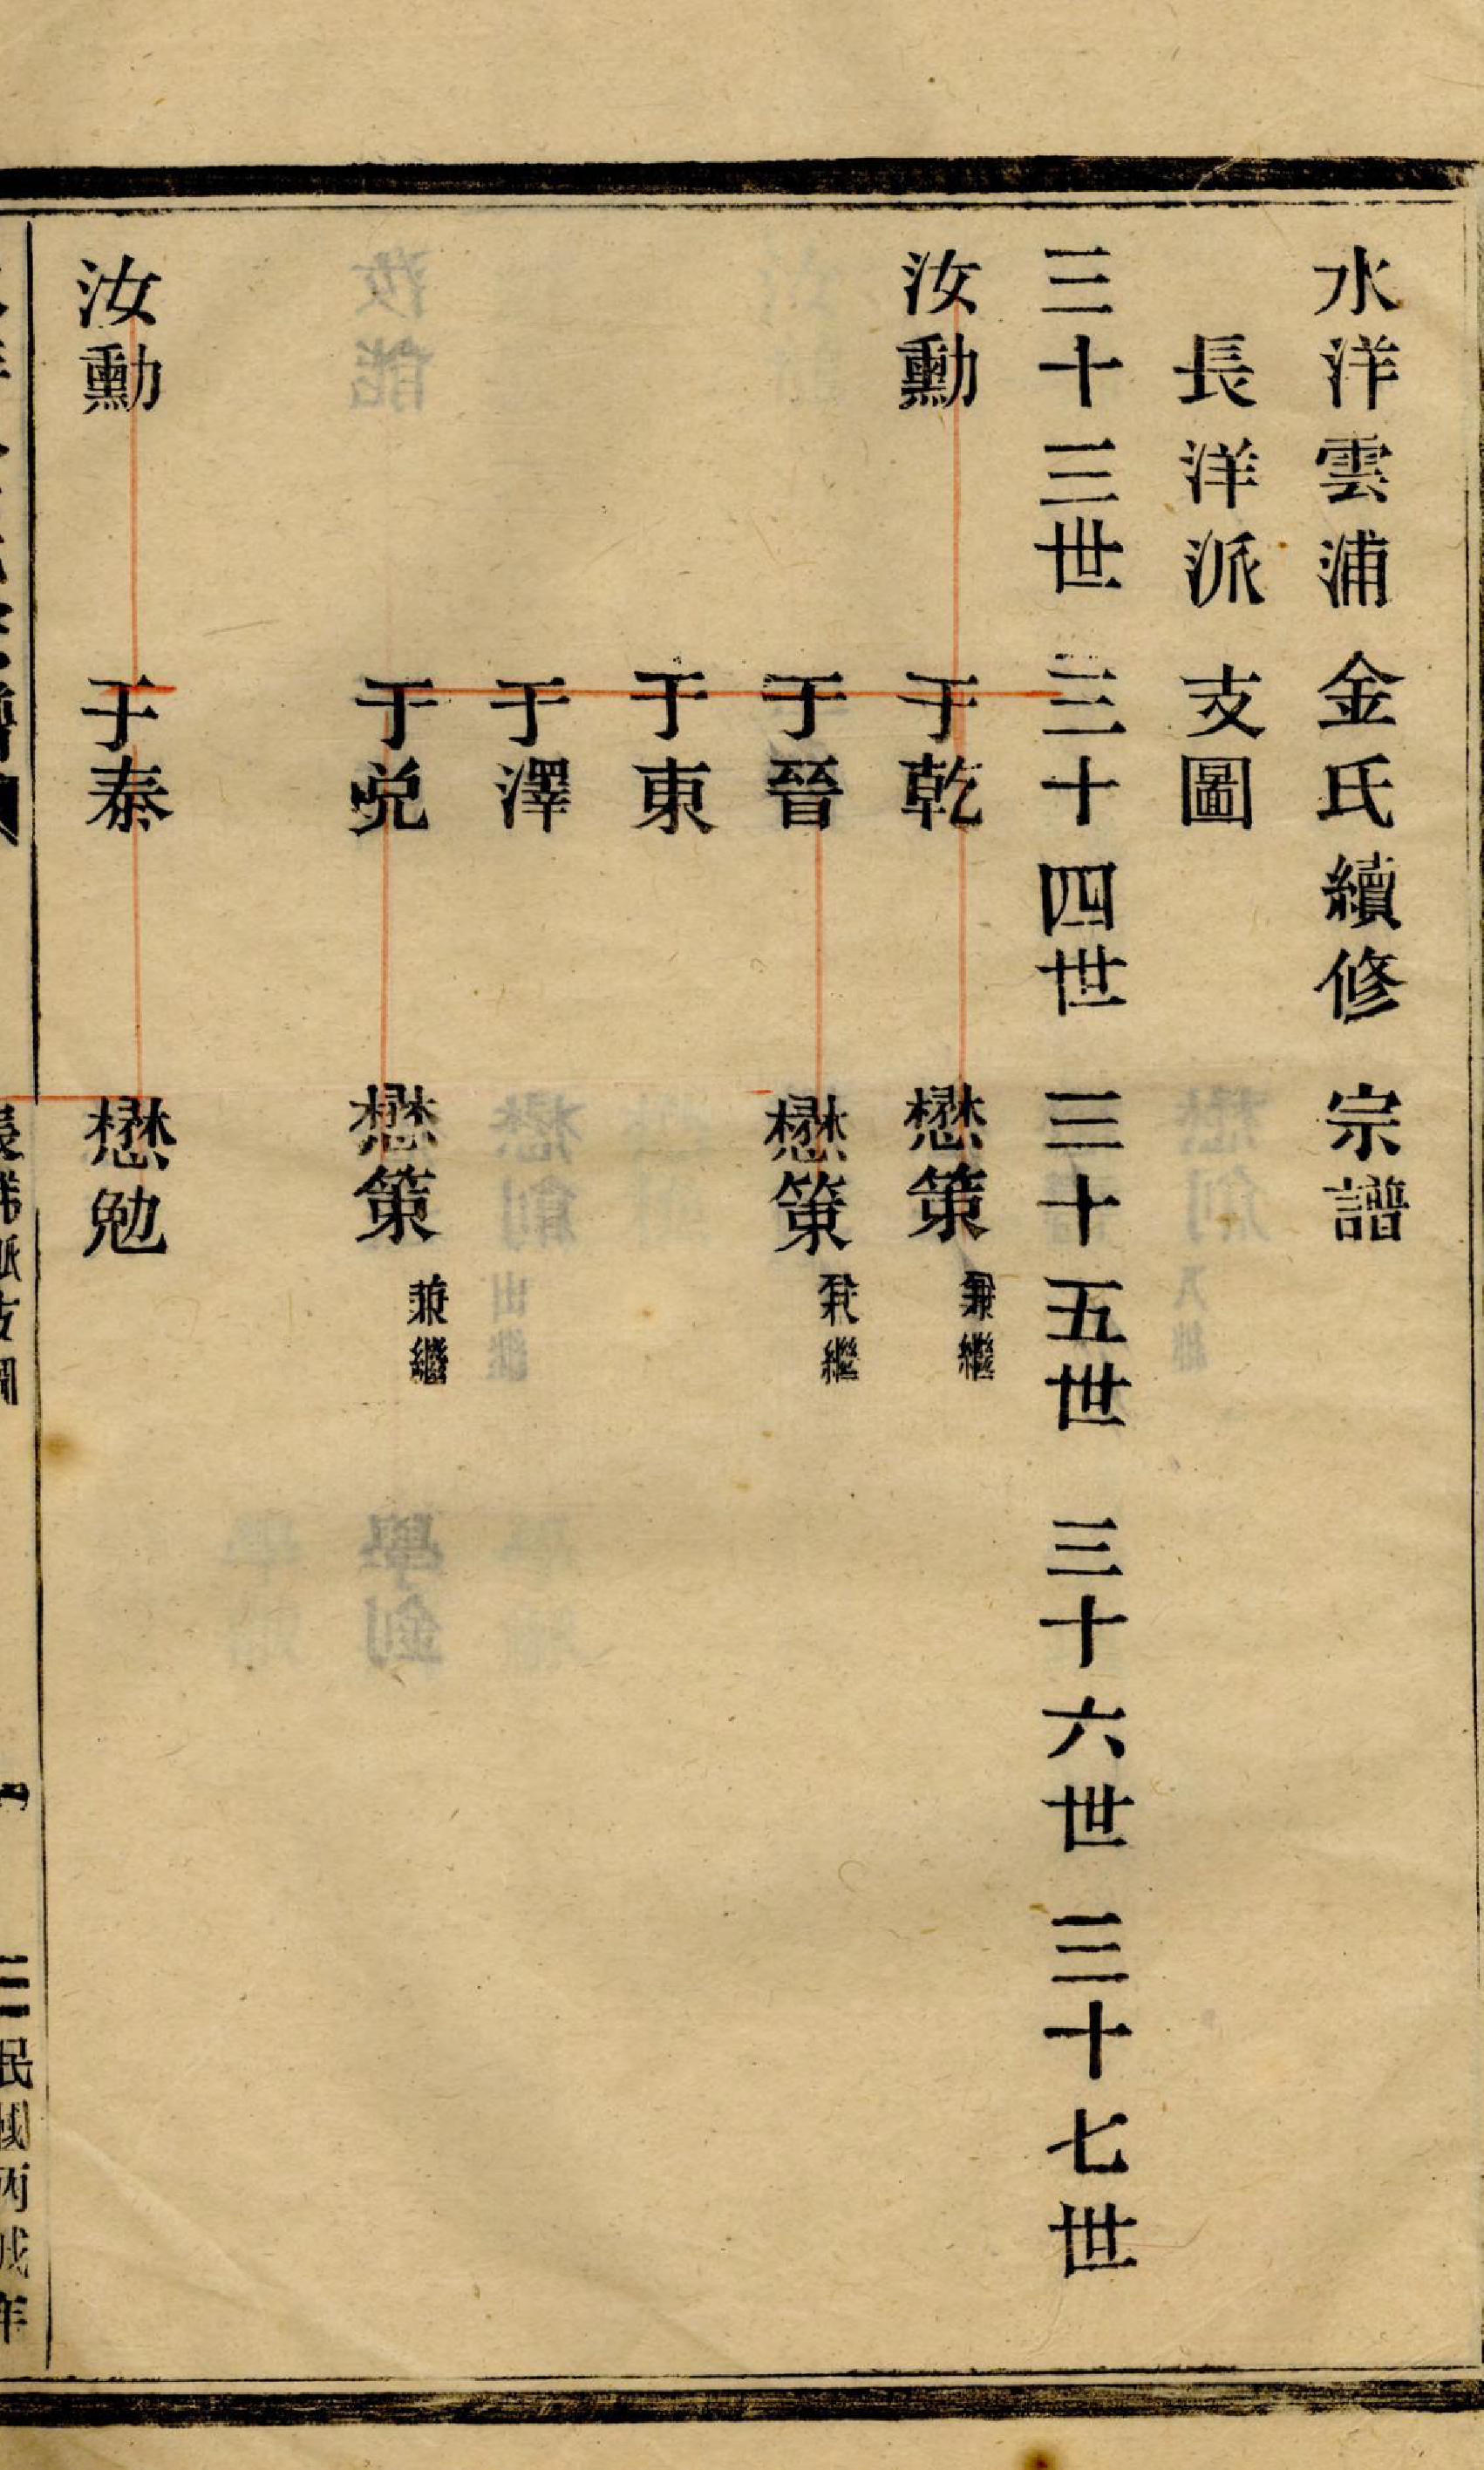 水洋雲浦金氏續修宗譜
長洋派支圖
三十三世 三十四世 三十五世 三十六世 三十七世
汝勳 于乾 懋策 兼繼
于晉 懋策 兼繼
于東
于澤
于兌 懋策 兼繼
汝勳 于泰 懋勉
民國丙戌年